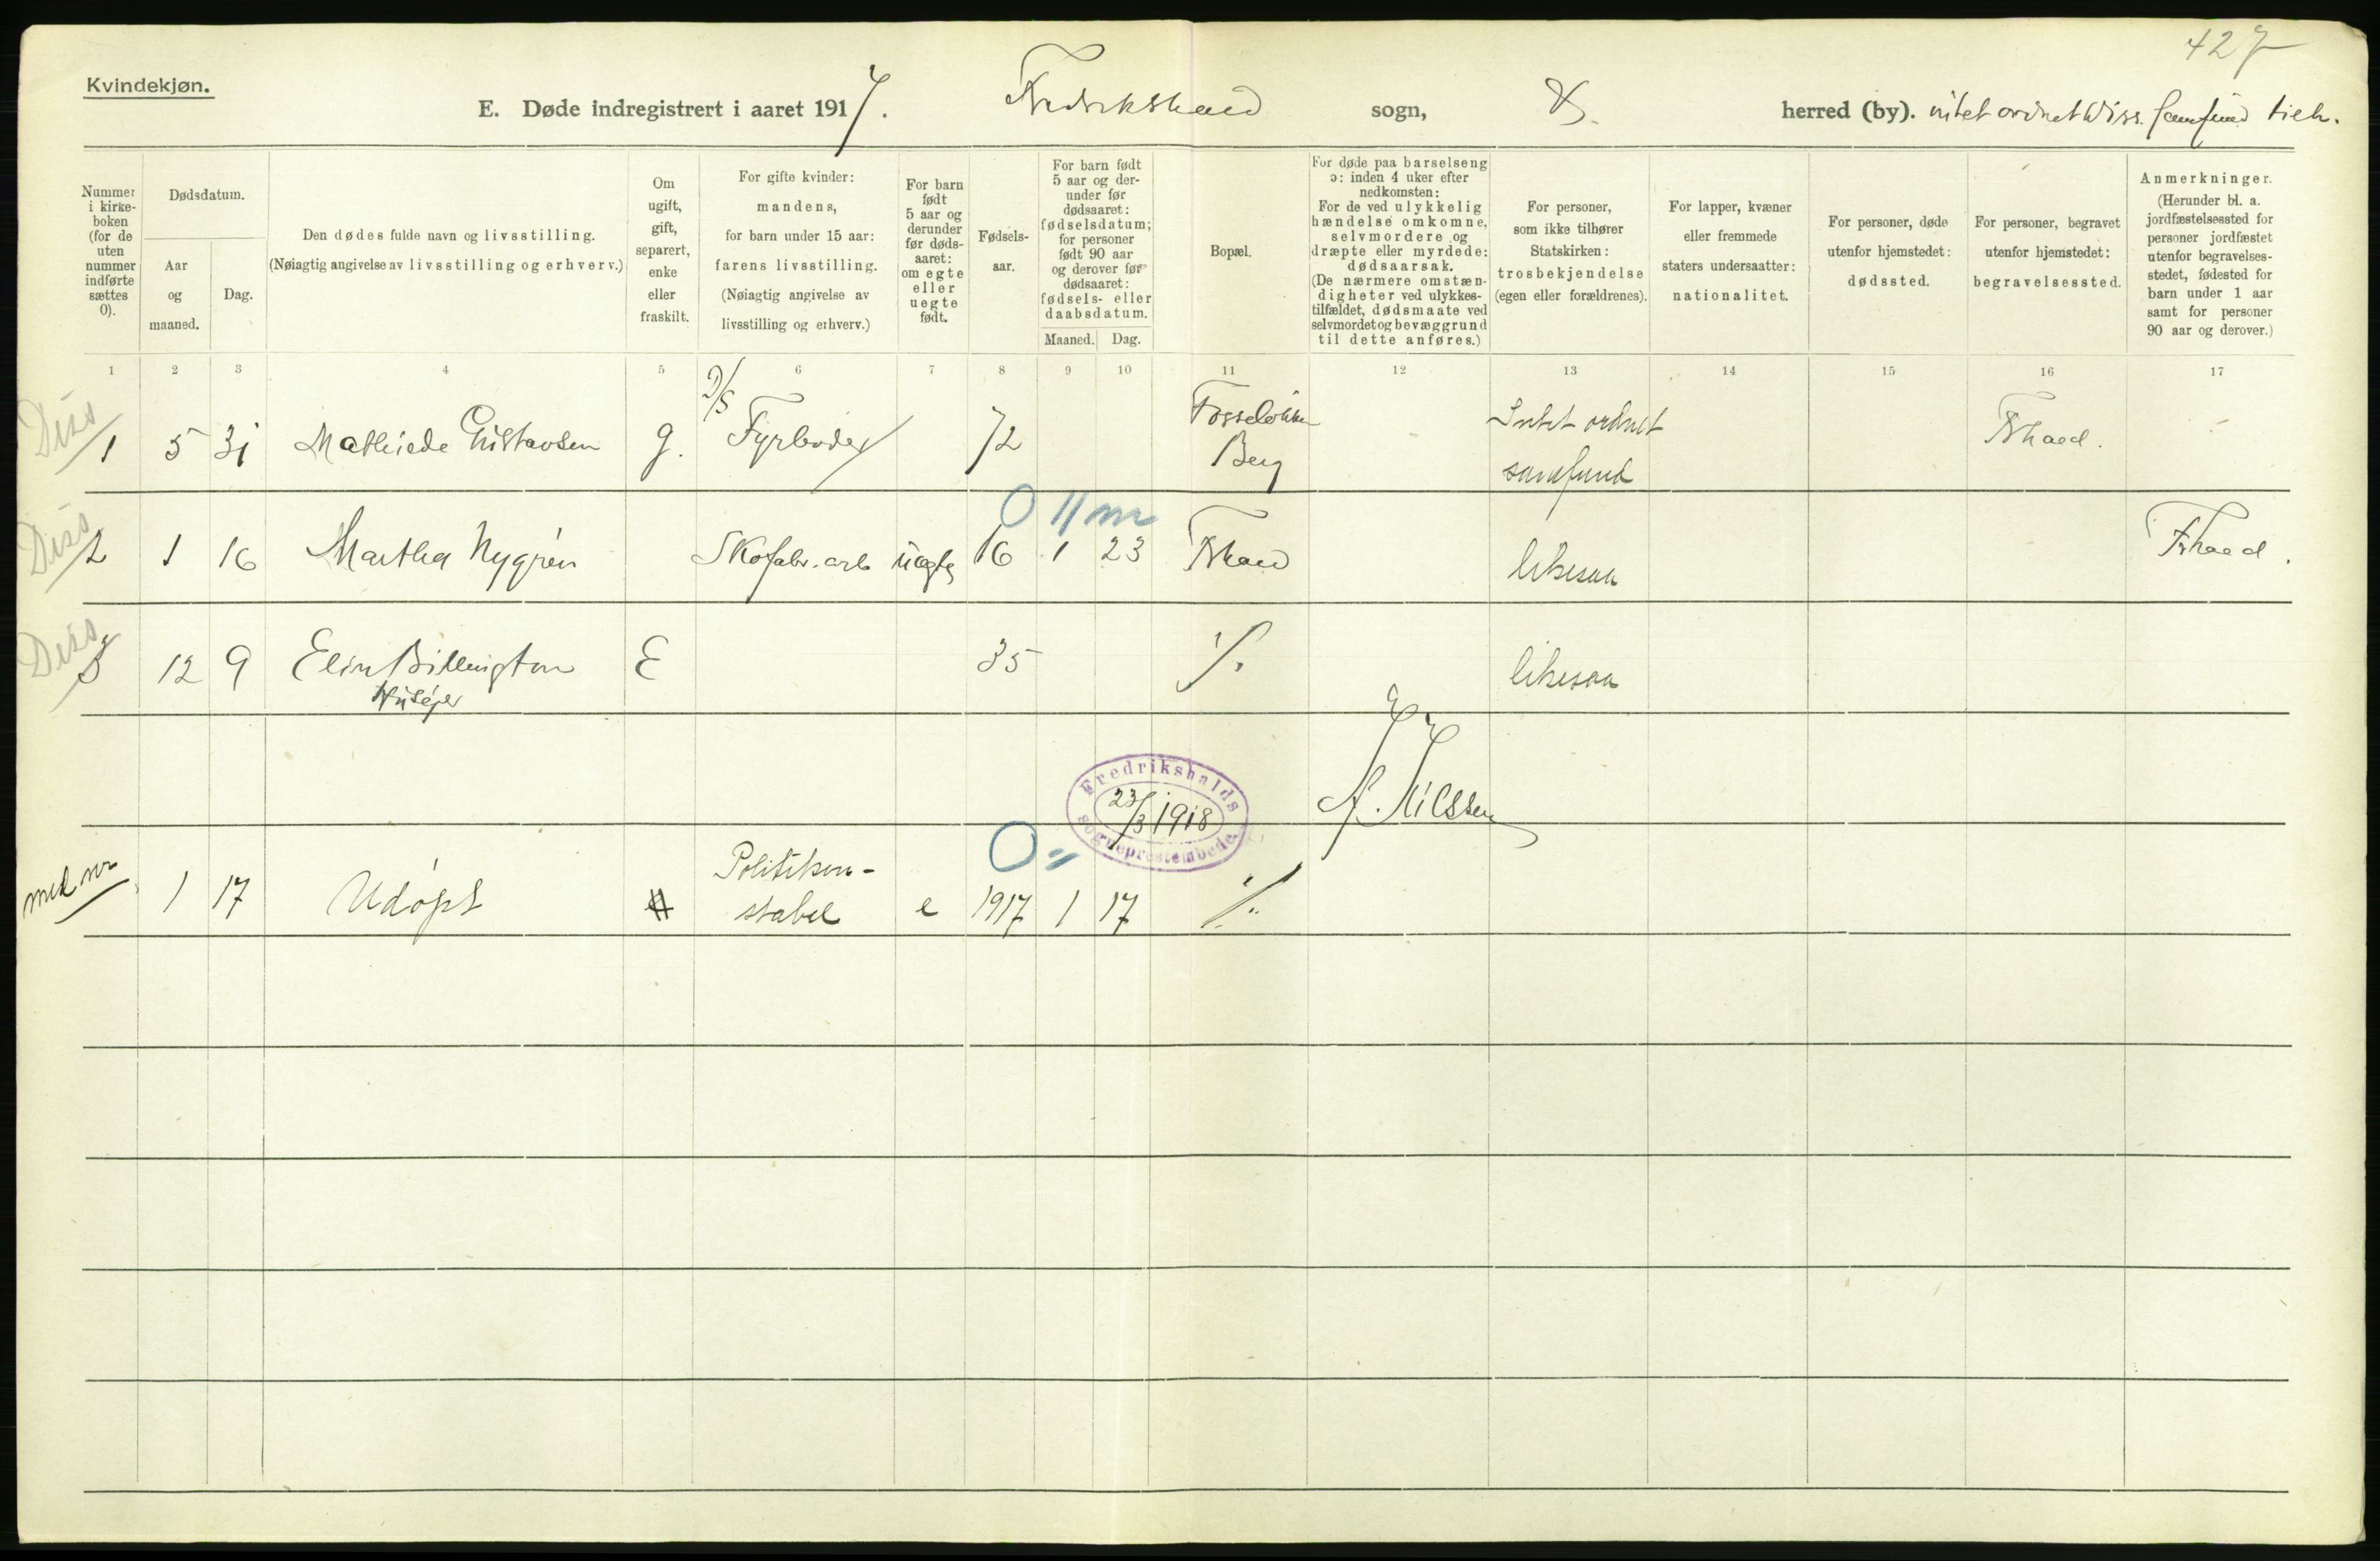 427
Kvindekjøn.
E. Døde indregistrert i aaret 1917. Fredrikshald sogn, herred (by). intet ordnet diss. samfund tilh.
Nummer i kirkeboken (for de uten nummer indførte sættes 0).
Dødsdatum.
Aar og maaned.
Dag.
Den dødes fulde navn og livsstilling.
(Nøiagtig angivelse av livsstilling og erhverv.)
Om ugift, gift, separert, enke eller fraskilt.
For gifte kvinder: mandens, for barn under 15 aar: farens livsstilling.
(Nøiagtig angivelse av livsstilling og erhverv.)
For barn født 5 aar og derunder før dødsaaret: om egte eller uegte født.
Fødselsaar.
For barn født 5 aar og derunder før dødsaaret: fødselsdatum; for personer født 90 aar og derover før dødsaaret: fødsels- eller daabsdatum.
Maaned. Dag.
Bopæl.
For døde paa barselseng ɔ: inden 4 uker efter nedkomsten:
For de ved ulykkelig hændelse omkomne, selvmordere og dræpte eller myrdede: dødsaarsak.
(De nærmere omstændigheter ved ulykkestilfældet, dødsmaate ved selvmordet og bevæggrund til dette anføres.)
For personer, som ikke tilhører Statskirken: trosbekjendelse (egen eller forældrenes).
For lapper, kvæner eller fremmede staters undersaatter: nationalitet.
For personer, døde utenfor hjemstedet: dødssted.
For personer, begravet utenfor hjemstedet: begravelsessted.
Anmerkninger.
(Herunder bl. a. jordfæstelsessted for personer jordfæstet utenfor begravelsesstedet, fødested for barn under 1 aar samt for personer 90 aar og derover.)
1 2 3 4 5 6 7 8 9 10 11 12 13 14 15 16 17
Diss
1 5 31 Mathilde Gustavsen g. D/S Fyrbøder 72 Fosseløkken Berg Intet ordnet samfund Frhald.
0 11 m
Diss
2 1 16 Martha Nygrén Skofabr. arb uegte 16 1 23 Frhald likesaa Frhald.
Diss
3 12 9 Elin Billington E 35 likesaa
Huseier
Fredrikshalds sogneprestembede
23/3 1918
Nilssen
0 =
med nr 1 17 Udøpt Politikon-
stabel e 1917 1 17